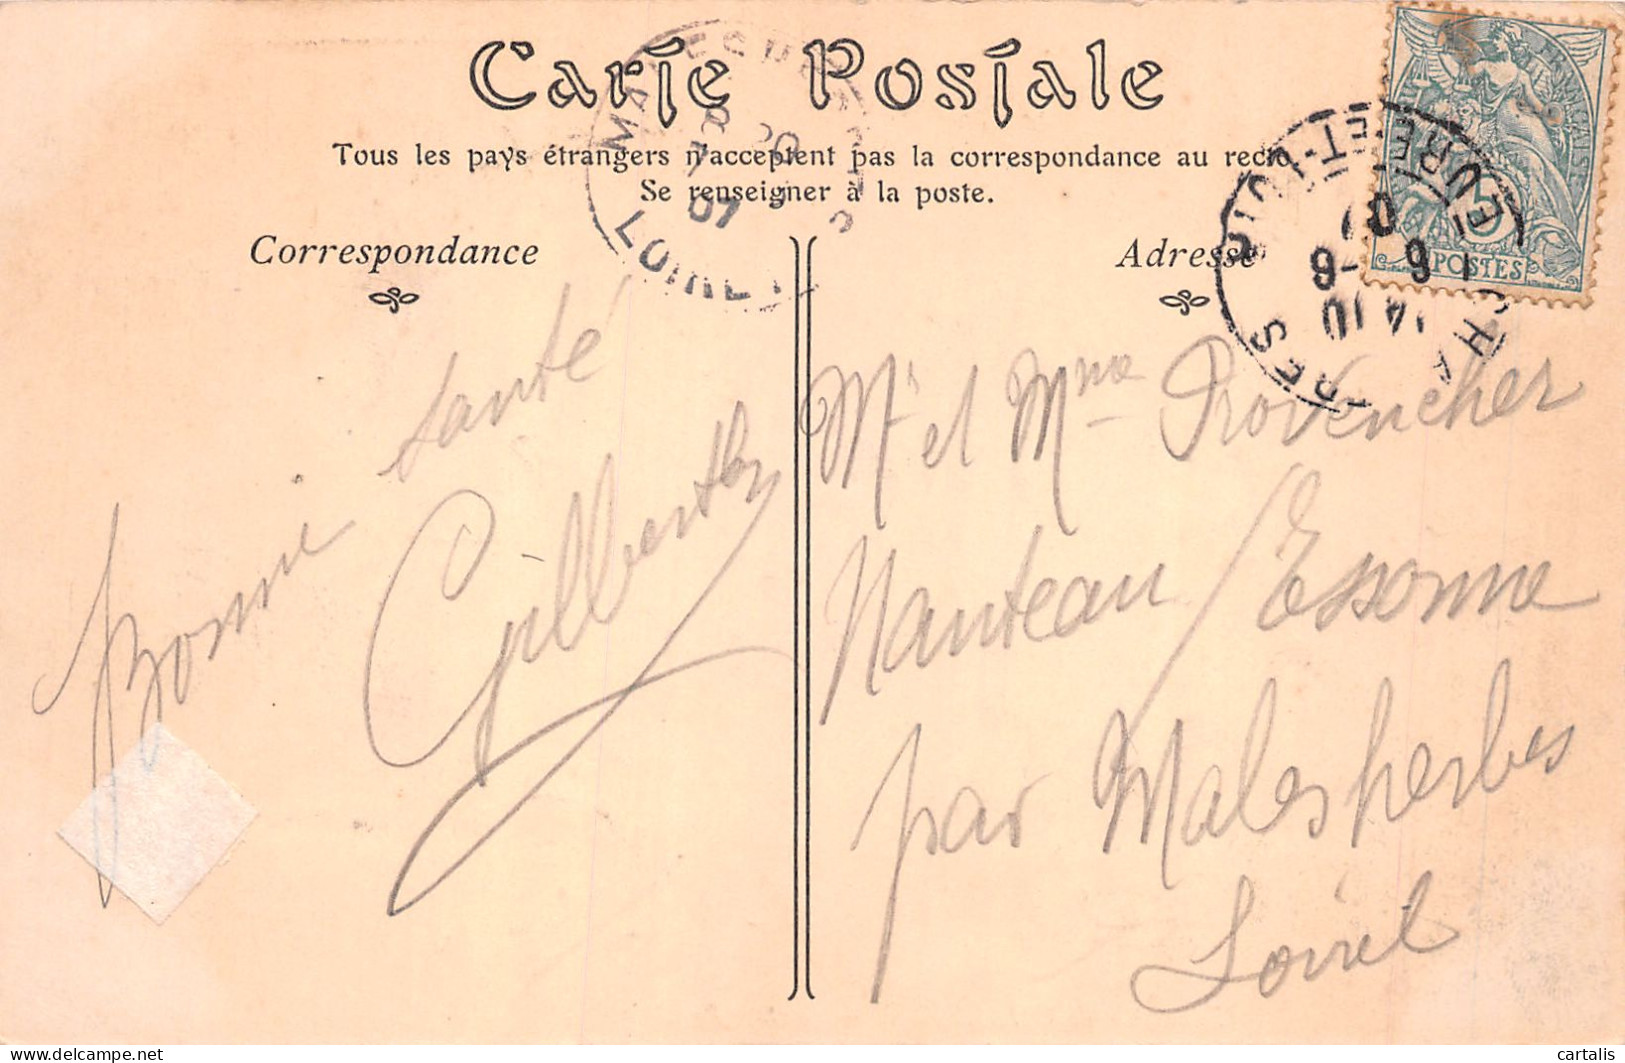 Carte Postale
Tous les pays étrangers n'acceptent pas la correspondance au recto
Se renseigner à la poste.
Correspondance
Adresse
Bonne santé
Gilberth
Mr et Mme Provencher
Nanteau / Essonne
par Malesherbes
Loiret
LOIRET
07
EURE-ET-LOIR
POSTES
delcampe.net
cartalis